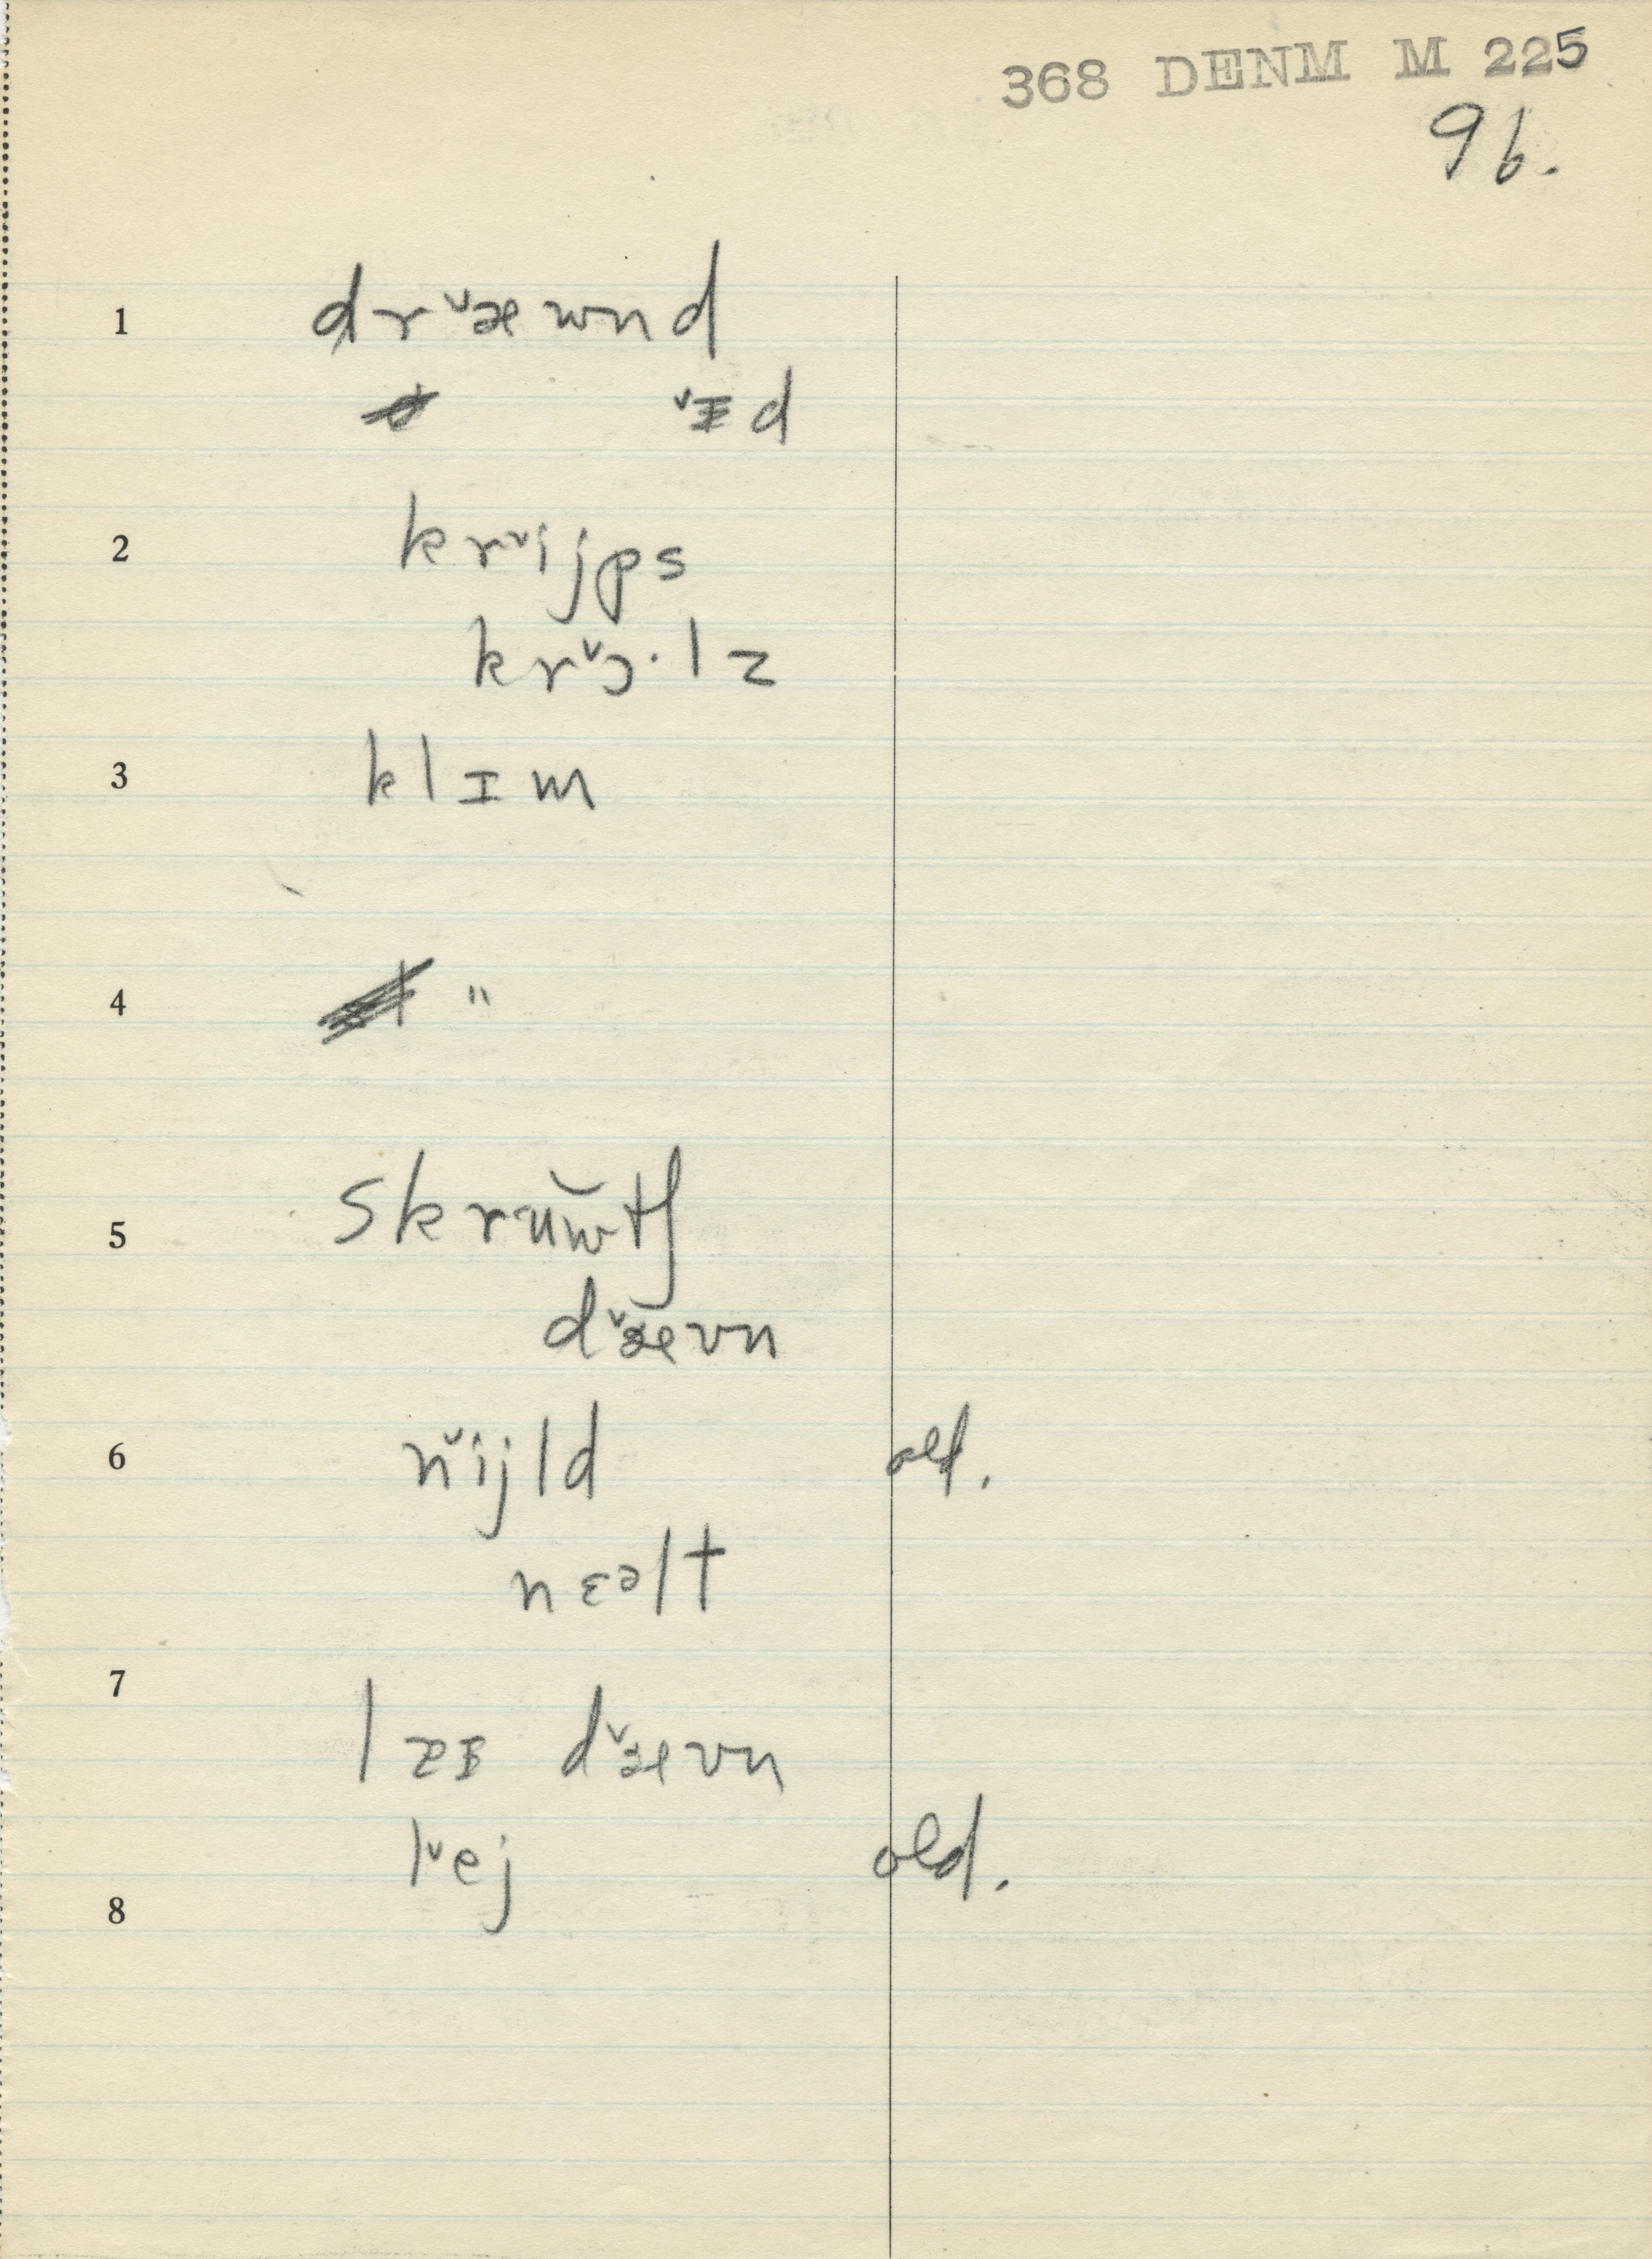 368 DENM M 225
96.
1 drˇæwnd
ˇɪd
2 krˇijps
krˇɔ·lz
3 klɪm
4 "
5 skrŭwtʃ
dˇævn
6 nˇijld old.
nɛəlt
7 l dˇævn
lˇej old.
8